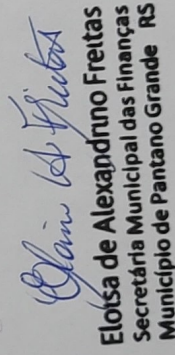 Eloisa de Alexandrino Freitas
Secretária Municipal das Finanças
Município de Pantano Grande RS